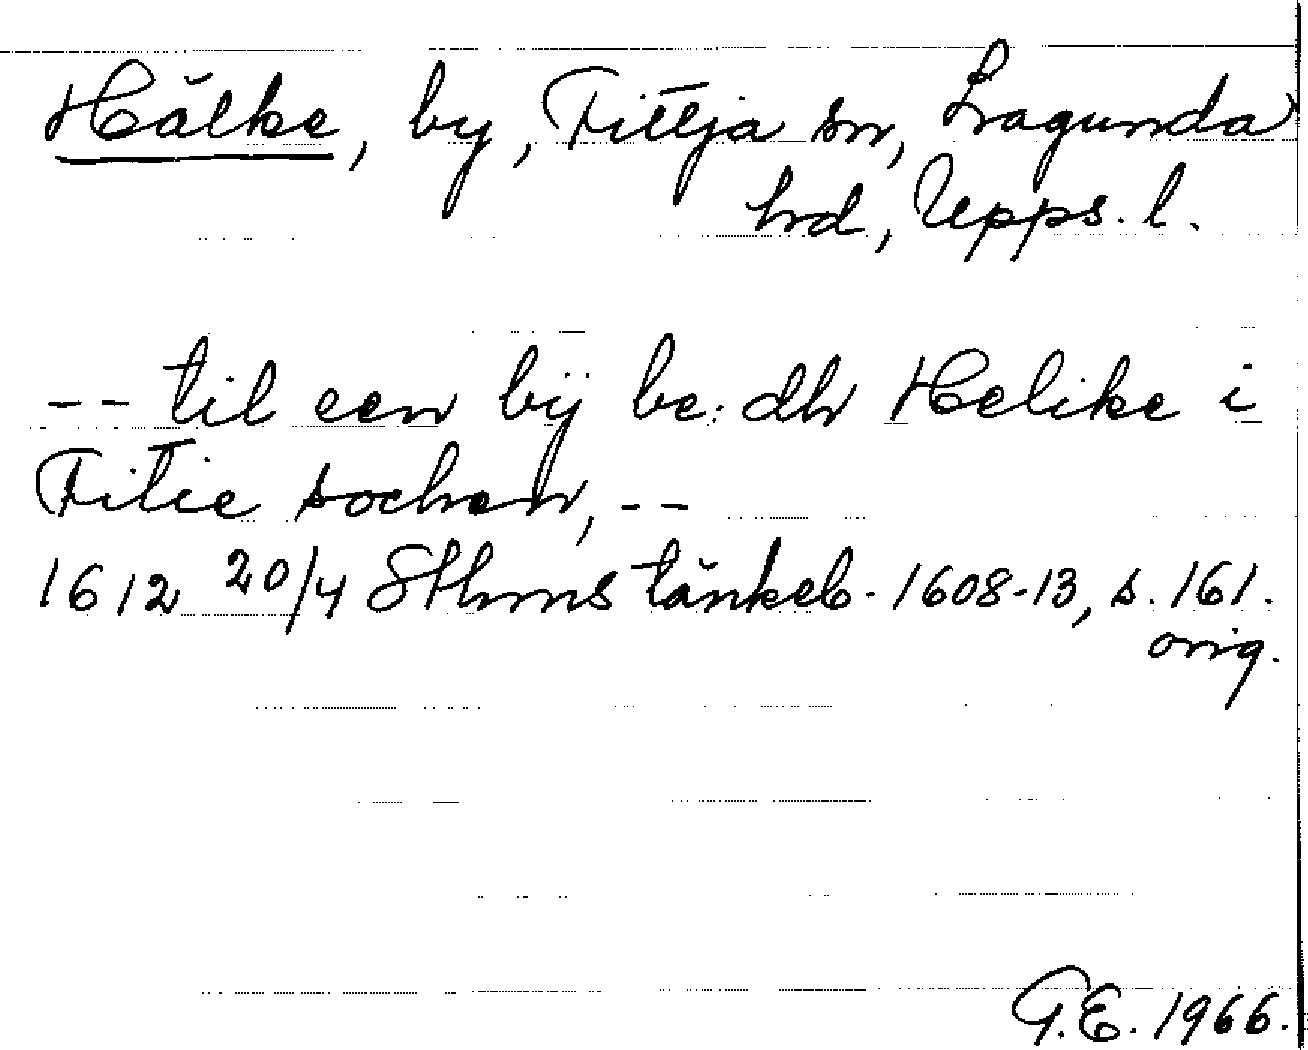 Hälke, by, Fittja sn, Lagunda
hd, Upps. l.
-- til een bÿ be: dh Helike i
Fitie sochen, --
1612 20/4 Sthms tänkeb. 1608-13, s. 161.
orig.
G.E. 1966.